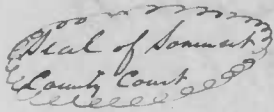 Seal of Somerset
County Court